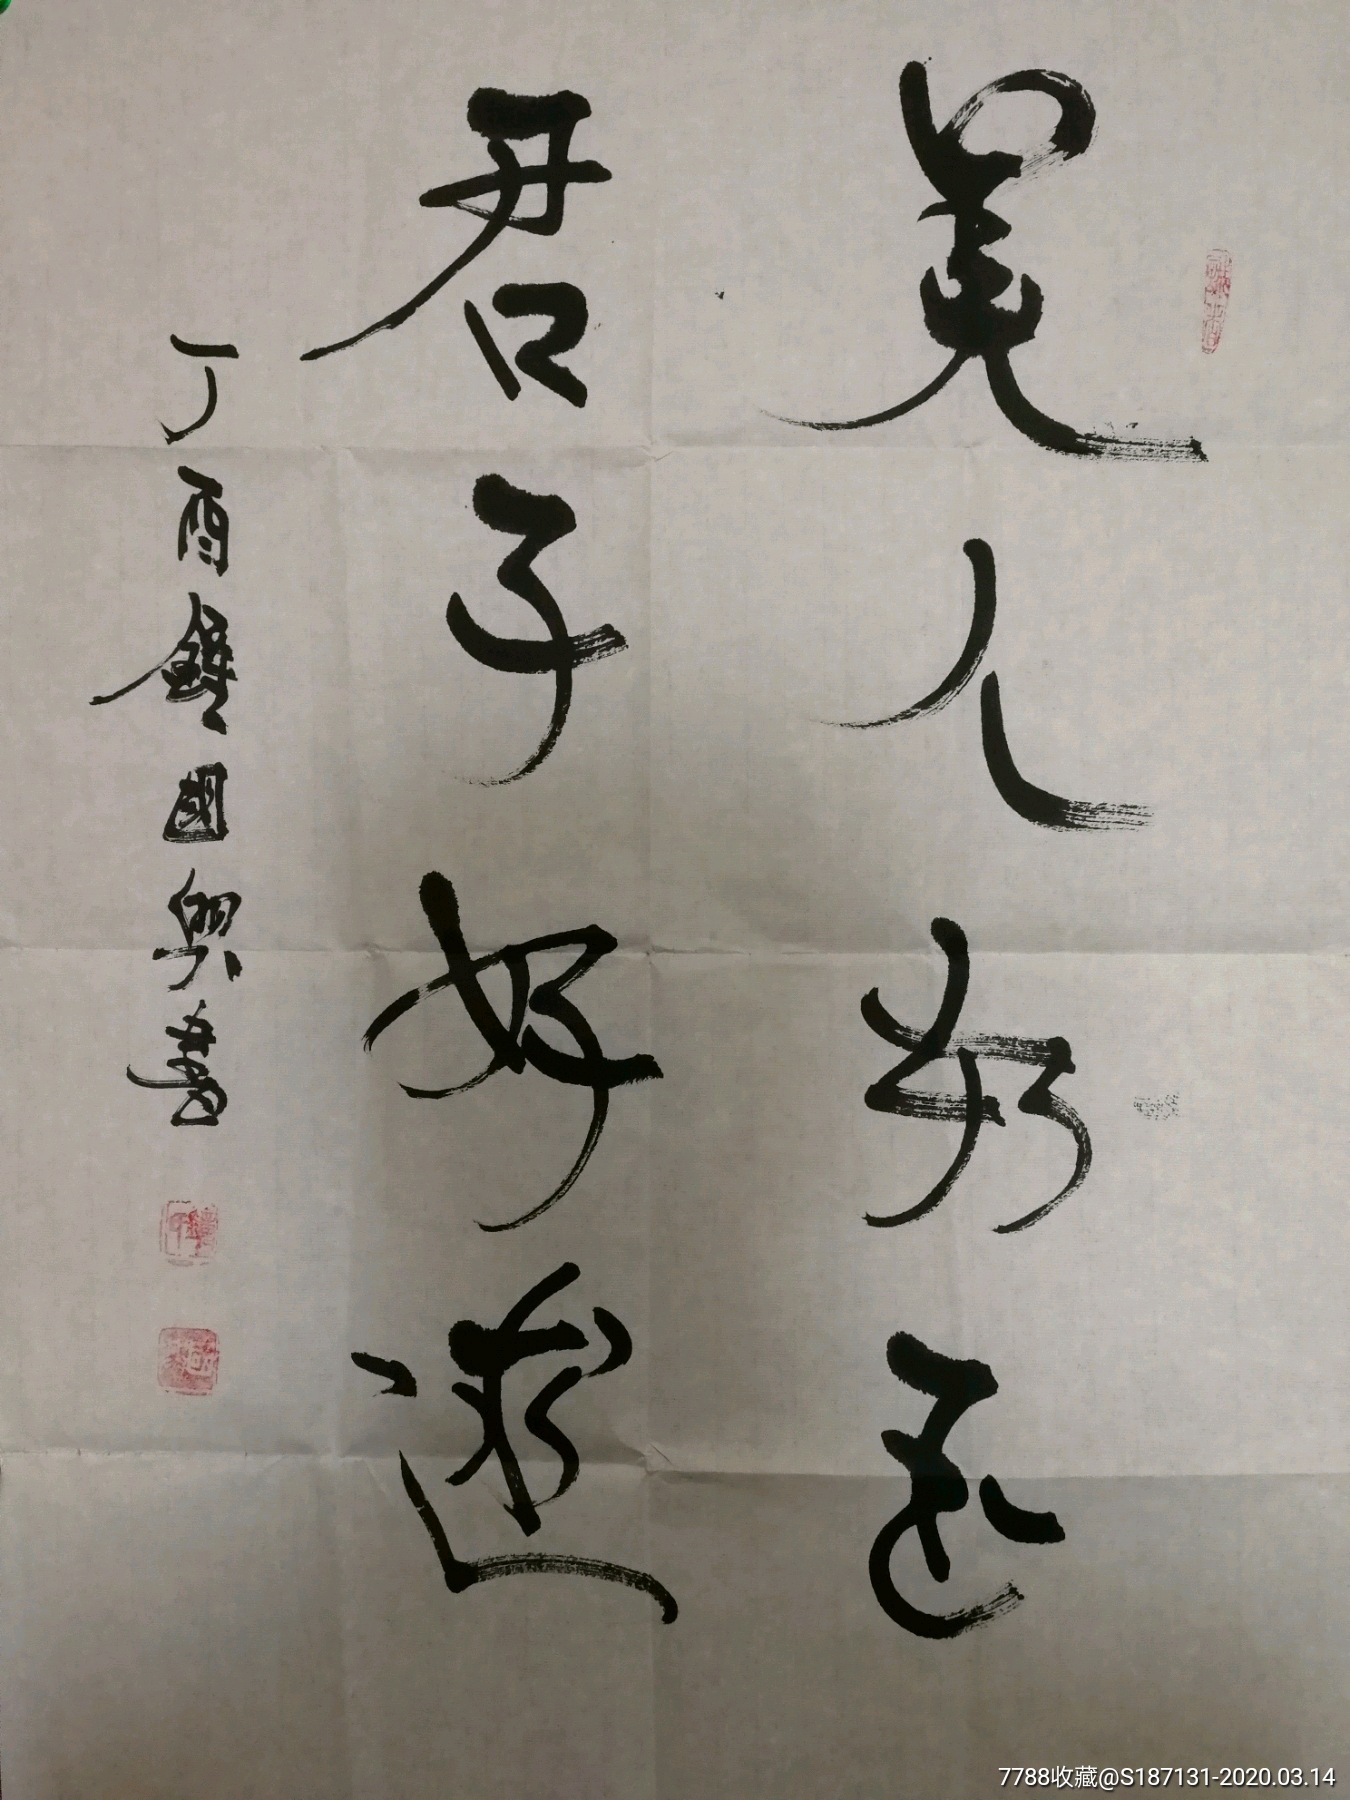 美人
君子好逑
丁酉國興書
7788收藏@S187131-2020.03.14